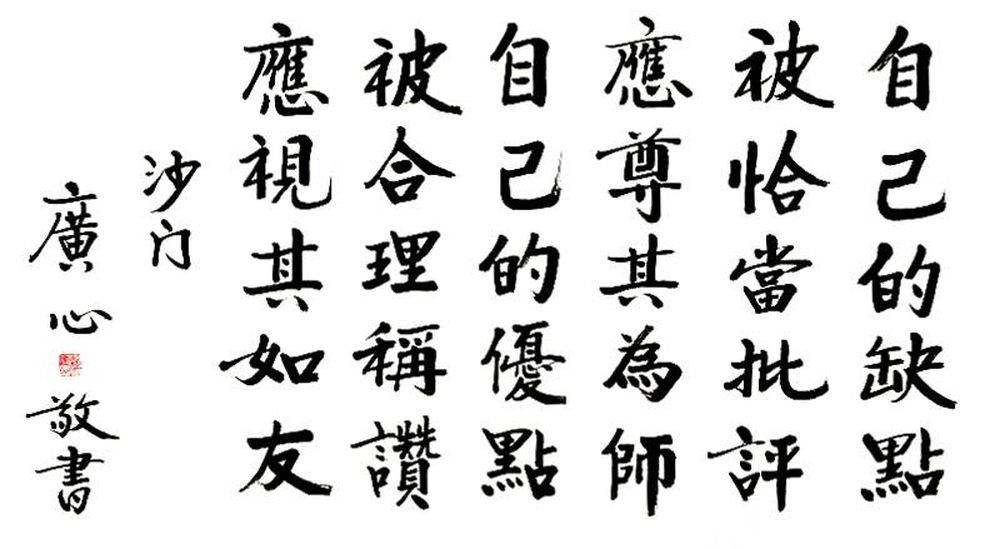 自己的缺點
被恰當批評
應尊其為師
自己的優點
被合理稱讚
應視其如友
沙门
廣心敬書